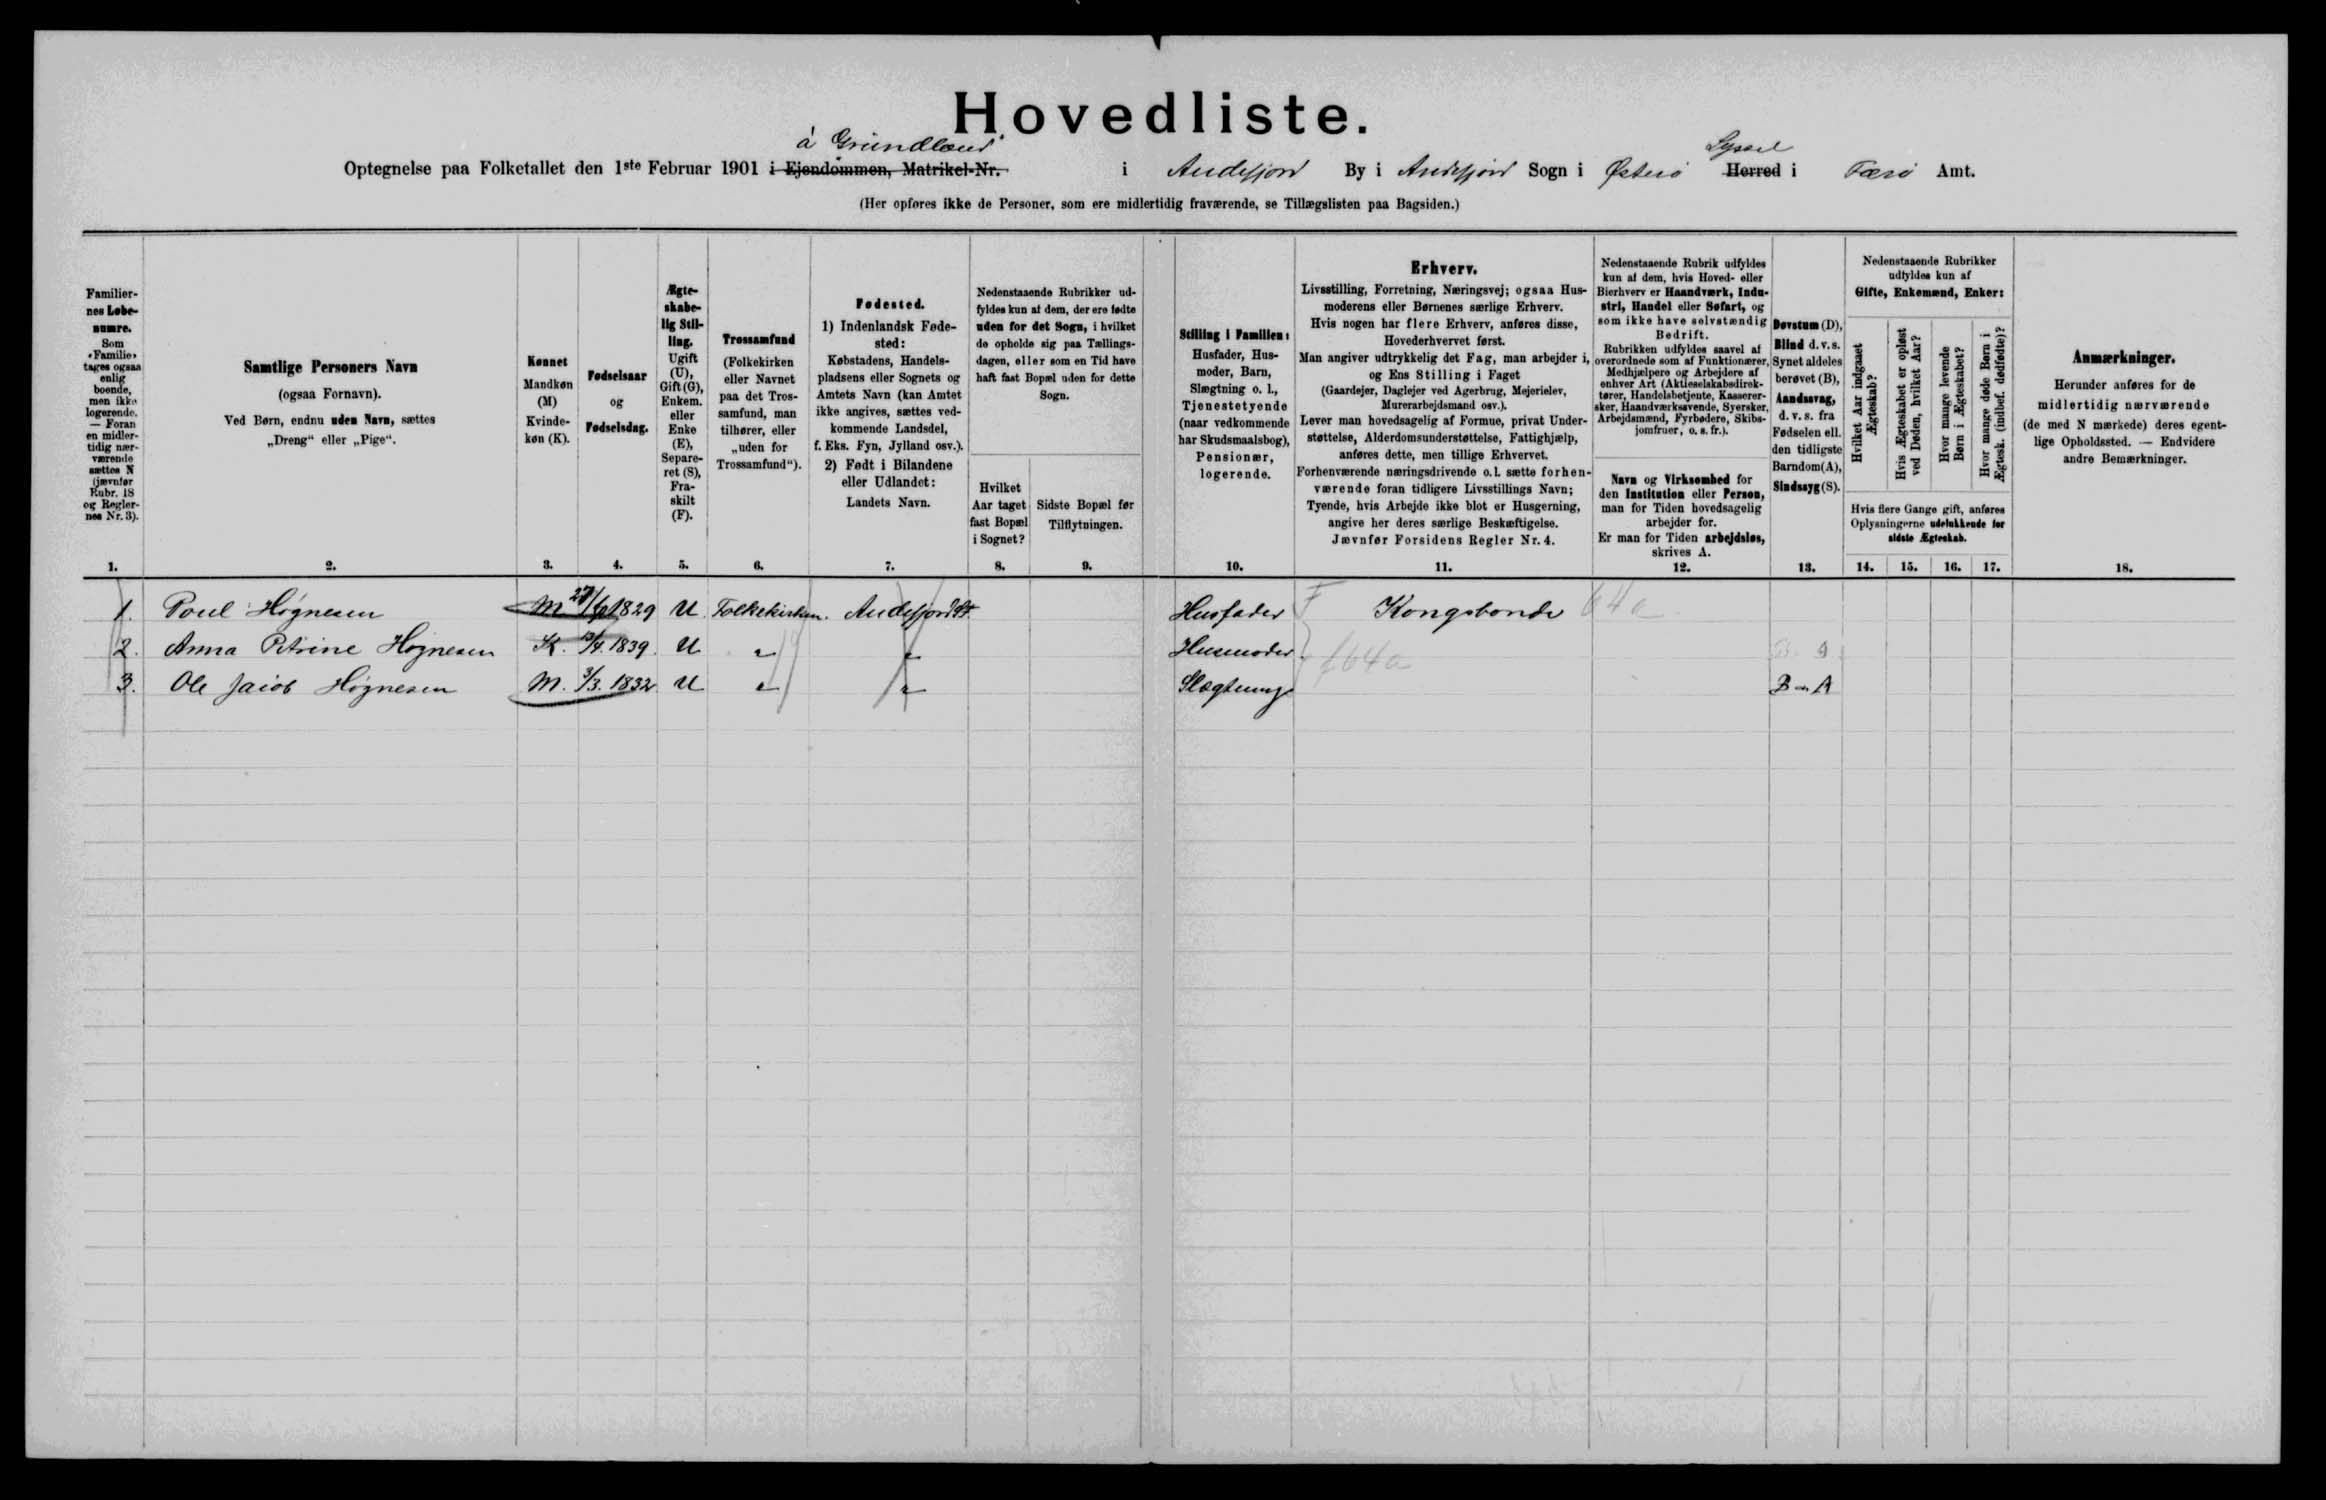 Hovedliste.
á Grundland Syssel
Optegnelse paa Folketallet den 1ste Februar 1901 i Ejendommen, Matrikel-Nr. i Andefjord By i Andefjord Sogn i Østerø Herred i Færø Amt.
(Her opføres ikke de Personer, som ere midlertidig fraværende, se Tillægslisten paa Bagsiden.)
Familier-
nes Løbe-
numre.
Som
«Familie»
tages ogsaa
enlig
boende,
men ikke
logerende.
— Foran
en midler-
tidig nær-
værende
sættes N
(jævnfør
Rubr. 18
og Regler-
nes Nr. 3).
1.
Samtlige Personers Navn
(ogsaa Fornavn).
Ved Børn, endnu uden Navn, sættes
„Dreng“ eller „Pige“.
2.
Kønnet
Mandkøn
(M)
Kvinde-
køn (K).
3.
Fødselsaar
og
Fødselsdag.
4.
Ægte-
skabe-
lig Stil-
ling.
Ugift
(U),
Gift (G),
Enkem.
eller
Enke
(E),
Separe-
ret (S),
Fra-
skilt
(F).
5.
Trossamfund
(Folkekirken
eller Navnet
paa det Tros-
samfund, man
tilhører, eller
„uden for
Trossamfund“).
6.
Fødested.
1) Indenlandsk Føde-
sted:
Købstadens, Handels-
pladsens eller Sognets og
Amtets Navn (kan Amtet
ikke angives, sættes ved-
kommende Landsdel,
f. Eks. Fyn, Jylland osv.).
2) Født i Bilandene
eller Udlandet:
Landets Navn.
7.
Nedenstaaende Rubrikker ud-
fyldes kun af dem, der ere fødte
uden for det Sogn, i hvilket
de opholde sig paa Tællings-
dagen, eller som en Tid have
haft fast Bopæl uden for dette
Sogn.
Hvilket
Aar taget
fast Bopæl
i Sognet?
8.
Sidste Bopæl før
Tilflytningen.
9.
Stilling i Familien:
Husfader, Hus-
moder, Barn,
Slægtning o. l.,
Tjenestetyende
(naar vedkommende
har Skudsmaalsbog),
Pensionær,
logerende.
10.
Erhverv.
Livsstilling, Forretning, Næringsvej; ogsaa Hus-
moderens eller Børnenes særlige Erhverv.
Hvis nogen har flere Erhverv, anføres disse,
Hovederhvervet først.
Man angiver udtrykkelig det Fag, man arbejder i,
og Ens Stilling i Faget
(Gaardejer, Daglejer ved Agerbrug, Mejerielev,
Murerarbejdsmand osv.).
Lever man hovedsagelig af Formue, privat Under-
støttelse, Alderdomsunderstøttelse, Fattighjælp,
anføres dette, men tillige Erhvervet.
Forhenværende næringsdrivende o. l. sætte forhen-
værende foran tidligere Livsstillings Navn;
Tyende, hvis Arbejde ikke blot er Husgerning,
angive her deres særlige Beskæftigelse.
Jævnfør Forsidens Regler Nr. 4.
11.
Nedenstaaende Rubrik udfyldes
kun af dem, hvis Hoved- eller
Bierhverv er Haandværk, Indu-
stri, Handel eller Søfart, og
som ikke have selvstændig
Bedrift.
Rubrikken udfyldes saavel af
overordnede som af Funktionærer,
Medhjælpere og Arbejdere af
enhver Art (Aktieselskabsdirek-
tører, Handelsbetjente, Kasserer-
sker, Haandværkssvende, Syersker,
Arbejdsmænd, Fyrbødere, Skibs-
jomfruer, o. s. fr.).
Navn og Virksomhed for
den Institution eller Person,
man for Tiden hovedsagelig
arbejder for.
Er man for Tiden arbejdsløs,
skrives A.
12.
Døvstum (D),
Blind d. v. s.
Synet aldeles
berøvet (B),
Aandssvag,
d. v. s. fra
Fødselen ell.
den tidligste
Barndom (A),
Sindssyg (S).
13.
Nedenstaaende Rubrikker
udfyldes kun af
Gifte, Enkemænd, Enker:
Hvilket Aar indgaaet
Ægteskab?
Hvis Ægteskabet er opløst
ved Døden, hvilket Aar?
Hvor mange levende
Børn i Ægteskabet?
Hvor mange døde Børn i
Ægtesk. (indbef. dødfødte)?
Hvis flere Gange gift, anføres
Oplysningerne udelukkende for
sidste Ægteskab.
14. 15. 16. 17.
Anmærkninger.
Herunder anføres for de
midlertidig nærværende
(de med N mærkede) deres egent-
lige Opholdssted. — Endvidere
andre Bemærkninger.
18.
1. Poul Høgnesen M 1829 U. Folkekirken. Andefjord Husfader F Kongsbonde 64a
2. Anna Petrine Høgnesen K. 1839. U " " Husmoder. f64a
3. Ole Jacob Høgnesen M. 3/3. 1832 U " " Slægtning B A